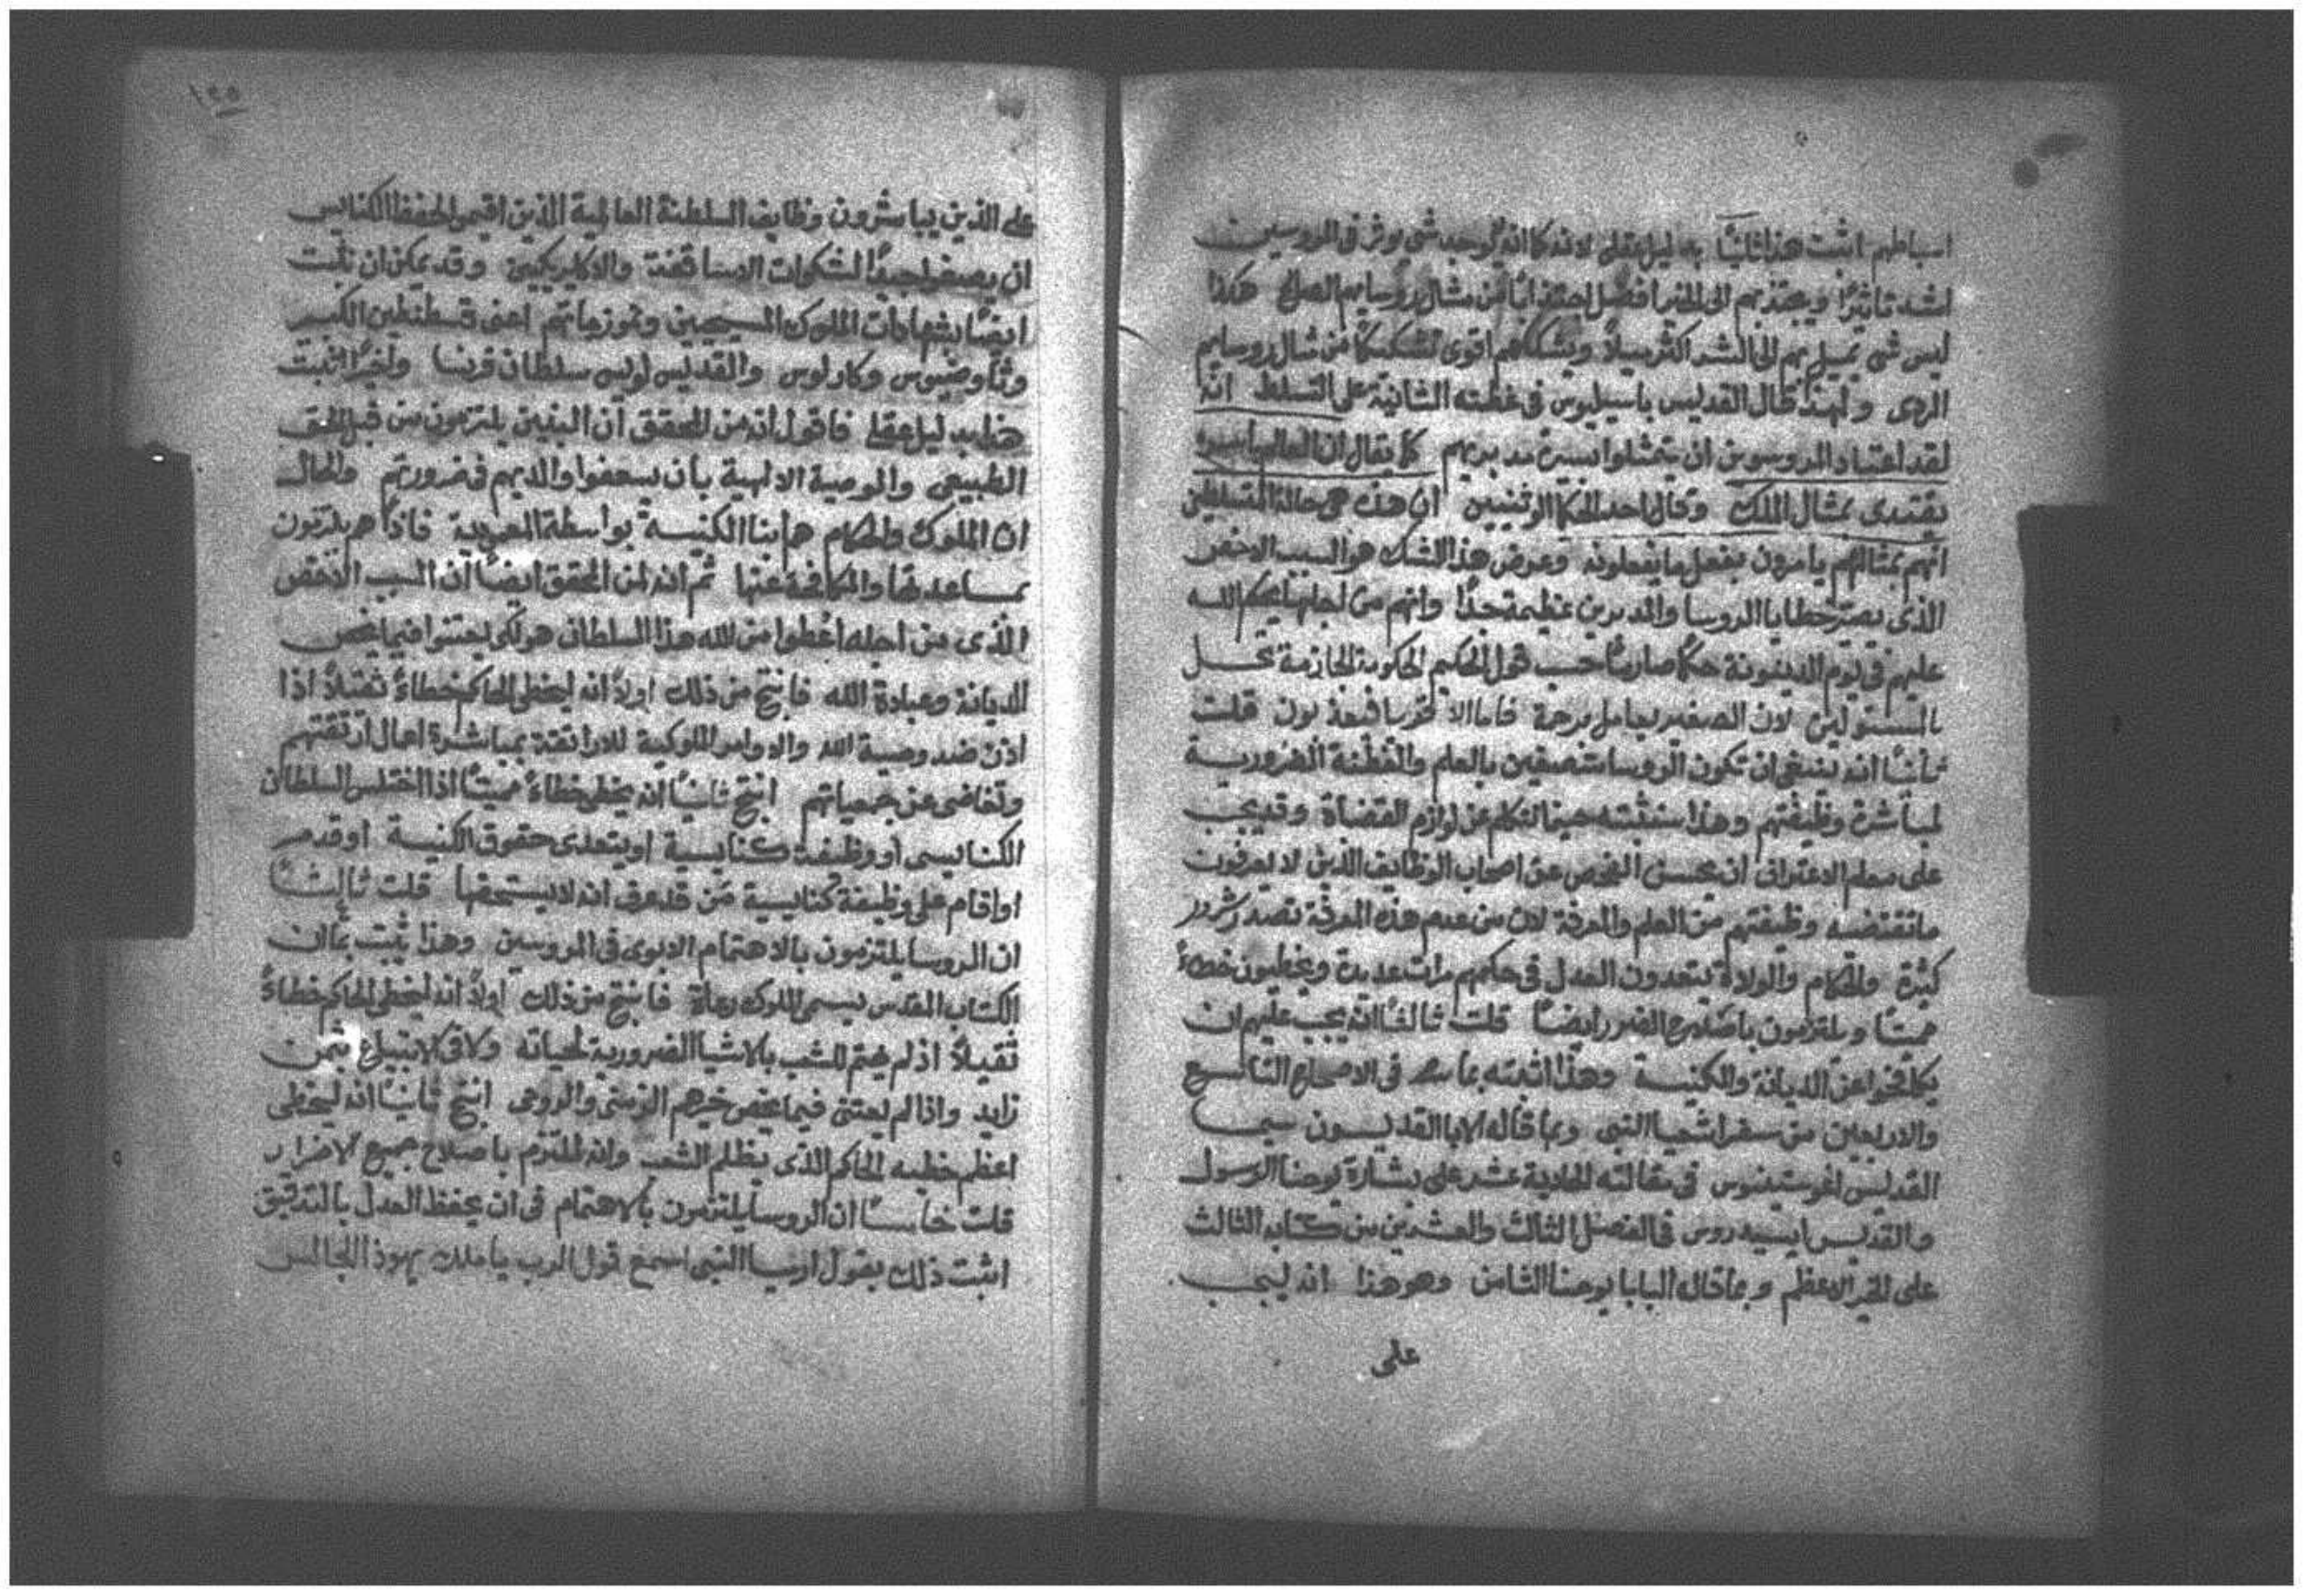 اسباطهم اثبت هذا ثانيًا بدليل عقلي لانه كما انه لا يوجد شي يوثر في المروسين
اشد تاثيرًا ويجتذبهم الى الخير افضل اجتذابًا من مثال روسايهم الصالح هكذا
ليس شي يميل بهم الى الشر اكثر ميلًا ويشككهم اقوى تشكيكًا من مثال روسايهم
الردى ولهذا قال القديس باسيليوس في عظته الثانية على التسلط انه
لقد اعتاد المروسون ان يتمثلوا بسيرة مدبريهم كما يقال ان العالم باسره
يقتدى بمثال الملك وقال احد الحكما الوثنيين ان هذه هي حالة المتسلطين
انهم بمثالهم يامرون بفعل ما يفعلونه وعرض هذا الشك هو السبب الاخص
الذى يصير خطايا الروسا والمدبرين عظيمة جدًا وانهم من اجلها يحكم الله
عليهم في يوم الدينونة حكمًا صارمًا حسب قول الحكيم الحكومة الجازمة تحل
بالمستولين لان الصغير يعامل برحمة فاما الا فيعذبون قلت
ثانيًا انه ينبغي ان تكون الروسا متصفين بالعلم والفطنة الضرورية
لمباشرة وظيفتهم وهذا سنثبته حينما نتكلم عن لوازم القضاة وقد يجب
على معلم الاعتراف ان يحسن الفحص عن اصحاب الوظايف الذين لا يعرفون
ما تقتضيه وظيفتهم من العلم والمعرفة لان من عدم هذه المعرفة تصدر شرور
كثيرة والحكام والولاة يتعدون العدل في حكمهم مرات عديدة ويخطيون خطاءً
مميتًا ويلتزمون باصلاح الضرر ايضًا قلت ثالثًا انه يجب عليهم ان
يكافحوا عن الديانة والكنيسة وهذا اثبته بما في الاصحاح التاسع
والاربعين من سفر اشعيا النبي وبما قاله الابا القديسون سيما
القديس اغوستينوس في مقالته الحادية عشر على بشارة يوحنا الرسول
والقديس ايسيدروس في الفصل الثالث والعشرين من كتابه الثالث
على الخير الاعظم وبما قاله البابا يوحنا الثامن وهو هذا انه ليجب
على
١٢٥
على الذين يباشرون وظايف السلطنة العالمية الذين اقيموا لحفظ الكنايس
ان يصغوا جيدًا لشكوات الاساقفة والاكليريكيين وقد يمكن ان نثبت
ايضًا بشهادات الملوك المسيحيين ونموزجاتهم اعنى قسطنطين الكبير
وثاوضيوس وكارلوس والقديس لويس سلطان فرنسا واخيرًا اثبت
هذا بدليل عقلي فاقول انه من المحقق ان البنين يلتزمون من قبل الحق
الطبيعي والوصية الالهية بان يسعفوا والديهم في ضرورتهم والحال
ان الملوك والحكام هم ابنا الكنيسة بواسطة المعمودية فاذًا هم يلتزمون
بمساعدتها والمكافحة عنها ثم انه لمن المحقق ايضًا ان السبب الاخص
الذى من اجله اعطوا من الله هذا السلطان هو لكي يعتنوا فيما يخص
الديانة وعبادة الله فانتج من ذلك اولًا انه ليخطى الحاكم خطاءً ثقيلًا اذا
اذن ضد وصية الله والاوامر الملوكية للاراتقة بمباشرة اعمال ارتقتهم
وتغاضى عن جمعياتهم انتج ثانيًا انه يخطى خطاءً مميتًا اذا اختلس السلطان
الكنايسي او وظيفة كنايسية او يتعدى حقوق الكنيسة او قدم
او اقام على وظيفة كنايسية من قد عرف انه لا يستحقها قلت ثالثًا
ان الروسا يلتزمون بالاهتمام الابوى في المروسين وهذا يثبت بما ان
الكتاب المقدس يسمى الملوك رعاة فانتج من ذلك اولًا انه ليخطى الحاكم خطاءً
ثقيلًا اذ لم يهتم للشعب بالاشيا الضرورية لحياته ولاقى لا تبيع بثمن
زايد واذا لم يعتنى فيما يخص خيرهم الزمنى والروحى انتج ثانيًا انه ليخطى
اعظم خطيه الحاكم الذى يظلم الشعب وانه لملتزم باصلاح جميع الاضرار
قلت خامسًا ان الروسا يلتزمون بالاهتمام في ان يحفظ العدل بالتدقيق
اثبت ذلك بقول ارميا النبي اسمع قول الرب يا ملك يهوذا الجالس